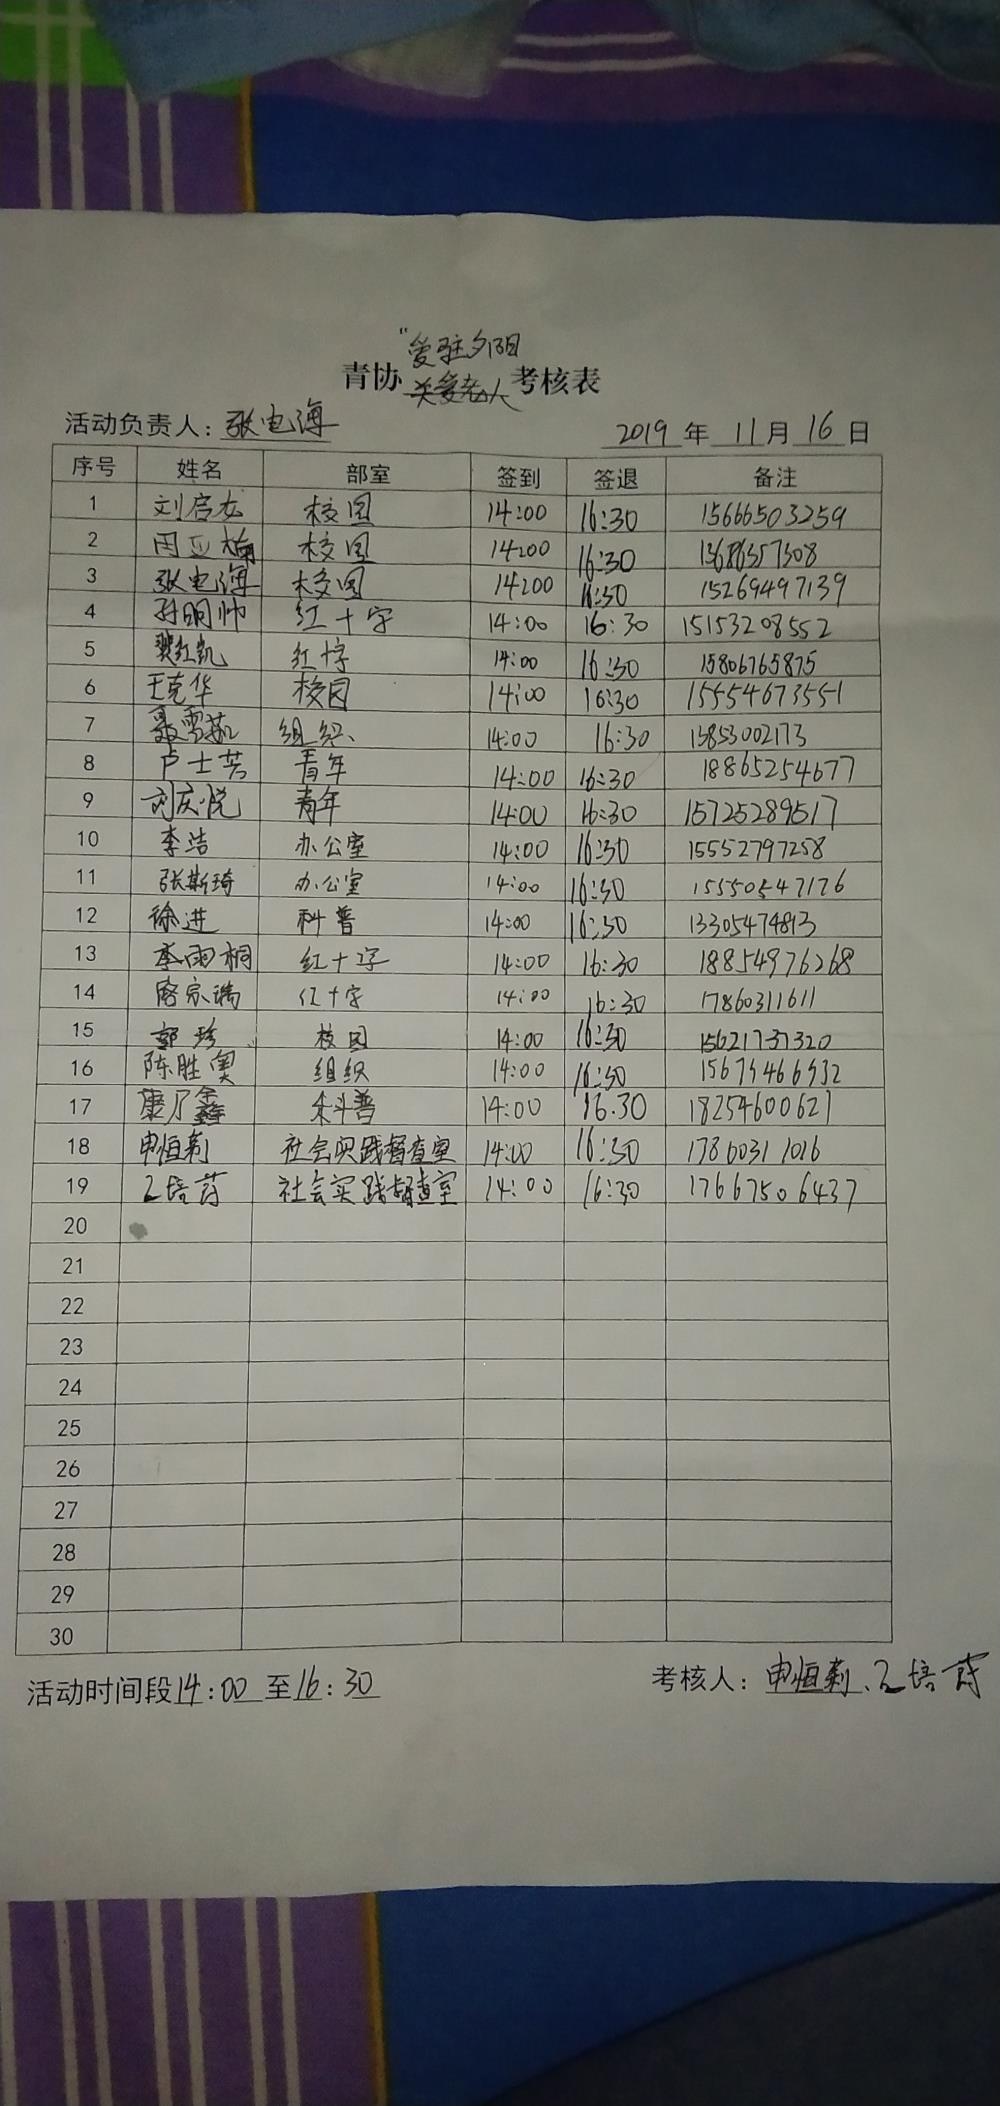 "爱驻夕阳
青协 关爱老人 考核表
活动负责人：张电海 2019 年 11 月 16 日
序号 姓名 部室 签到 签退 备注
1 刘启龙 校园 14:00 16:30 15666503259
2 周亚楠 校园 14:00 16:30 13686357308
3 张电海 校园 14:00 16:30 15269497139
4 孙明帅 红十字 14:00 16:30 15153208552
5 樊红凯 红十字 14:00 16:30 15806765875
6 王克华 校园 14:00 16:30 15554673551
7 聂雪茹 组织 14:00 16:30 15853002173
8 卢士芳 青年 14:00 16:30 18865254677
9 刘庆悦 青年 14:00 16:30 15725289517
10 李浩 办公室 14:00 16:30 15552797258
11 张斯琦 办公室 14:00 16:30 15550547176
12 徐进 科普 14:00 16:30 13305474813
13 李雨桐 红十字 14:00 16:30 18854976268
14 唐宗瑞 红十字 14:00 16:30 17860311611
15 郭珍 校园 14:00 16:30 15621737320
16 陈胜奥 组织 14:00 16:30
17 康乃鑫 科普 14:00 16.30 18254600621
18 申恒莉 社会实践督查室 14:00 16:30 17860311016
19 培 社会实践督查室 14:00 16:30 17667506437
20
21
22
23
24
25
26
27
28
29
30
活动时间段14:00 至16:30 考核人：申恒莉、培